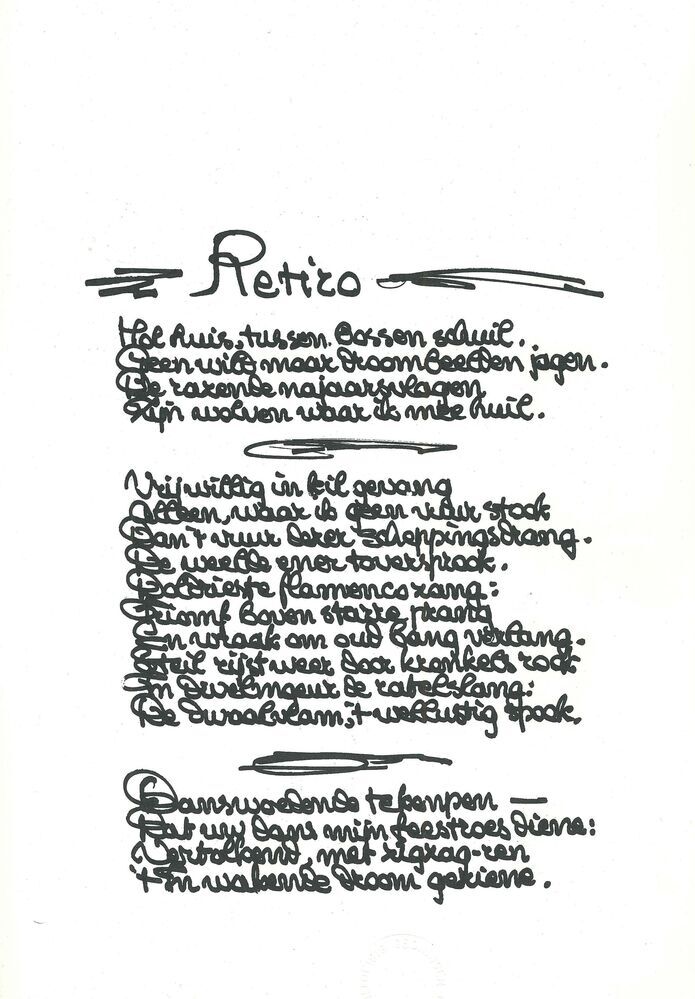 Retiro
Hol huis, tussen bossen schuil.
Geen wild maar droombeelden jagen.
De razende najaarsvlagen
Zijn wolven waar ik mee huil.
Vrijwillig in kil gevang
Alleen, waar ik geen vuur stook
Dan 't vuur dezer scheppingsdrang.
De weelde ener toversprook.
flamencozang:
Triomf boven starre prang
En wraak om oud bang verlang.
Steil rijst weer door kronkels rook
In dwelmgeur de ratelslang:
De dwaalvlam, 't wellustig spook.
Danswoedende te penpen —
Dat uw dans mijn feestroes diene:
Vertolkend, met zigzag-ren
't In wakende droom geziene.